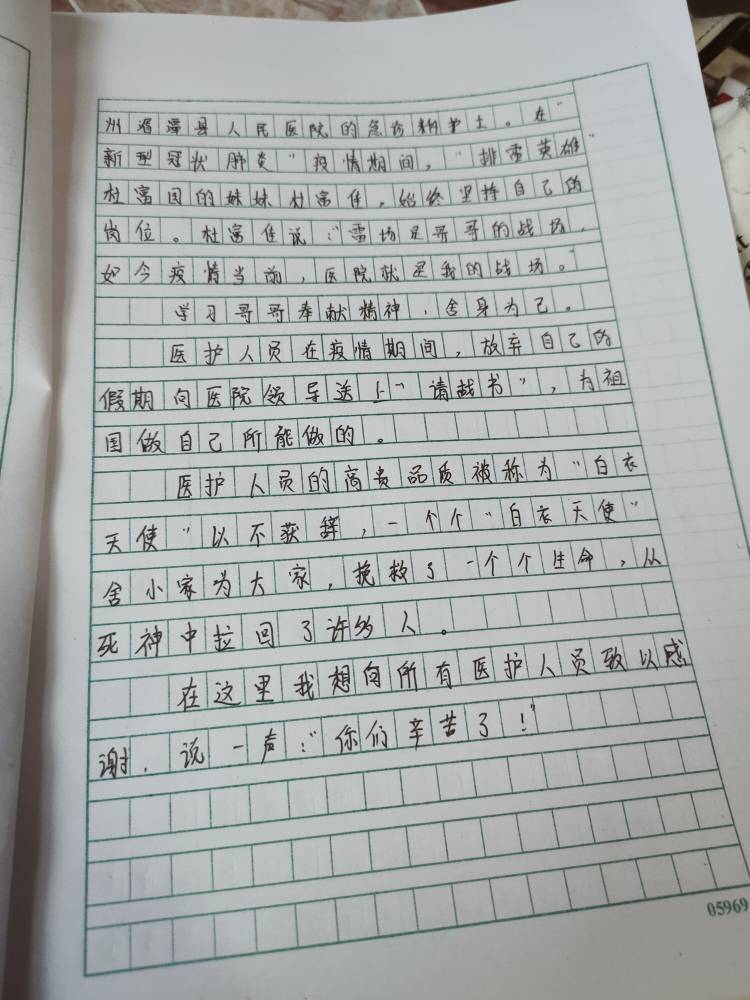 州湄潭县人民医院的急诊科护士。在"
新型冠状肺炎"疫情期间，"排雷英雄"
杜富国的妹妹杜富佳，始终坚持自己的
岗位。杜富佳说："雷场是哥哥的战场，
如今疫情当前，医院就是我的战场。"
学习哥哥奉献精神，舍身为己。
医护人员在疫情期间，放弃自己的
假期向医院领导送上"请战书"，为祖
国做自己所能做的。
医护人员的高贵品质被称为"白衣
天使"以不获辞，一个个"白衣天使"
舍小家为大家，挽救了一个个生命，从
死神中拉回了许多人。
在这里我想向所有医护人员致以感
谢，说一声："你们辛苦了！"
05969